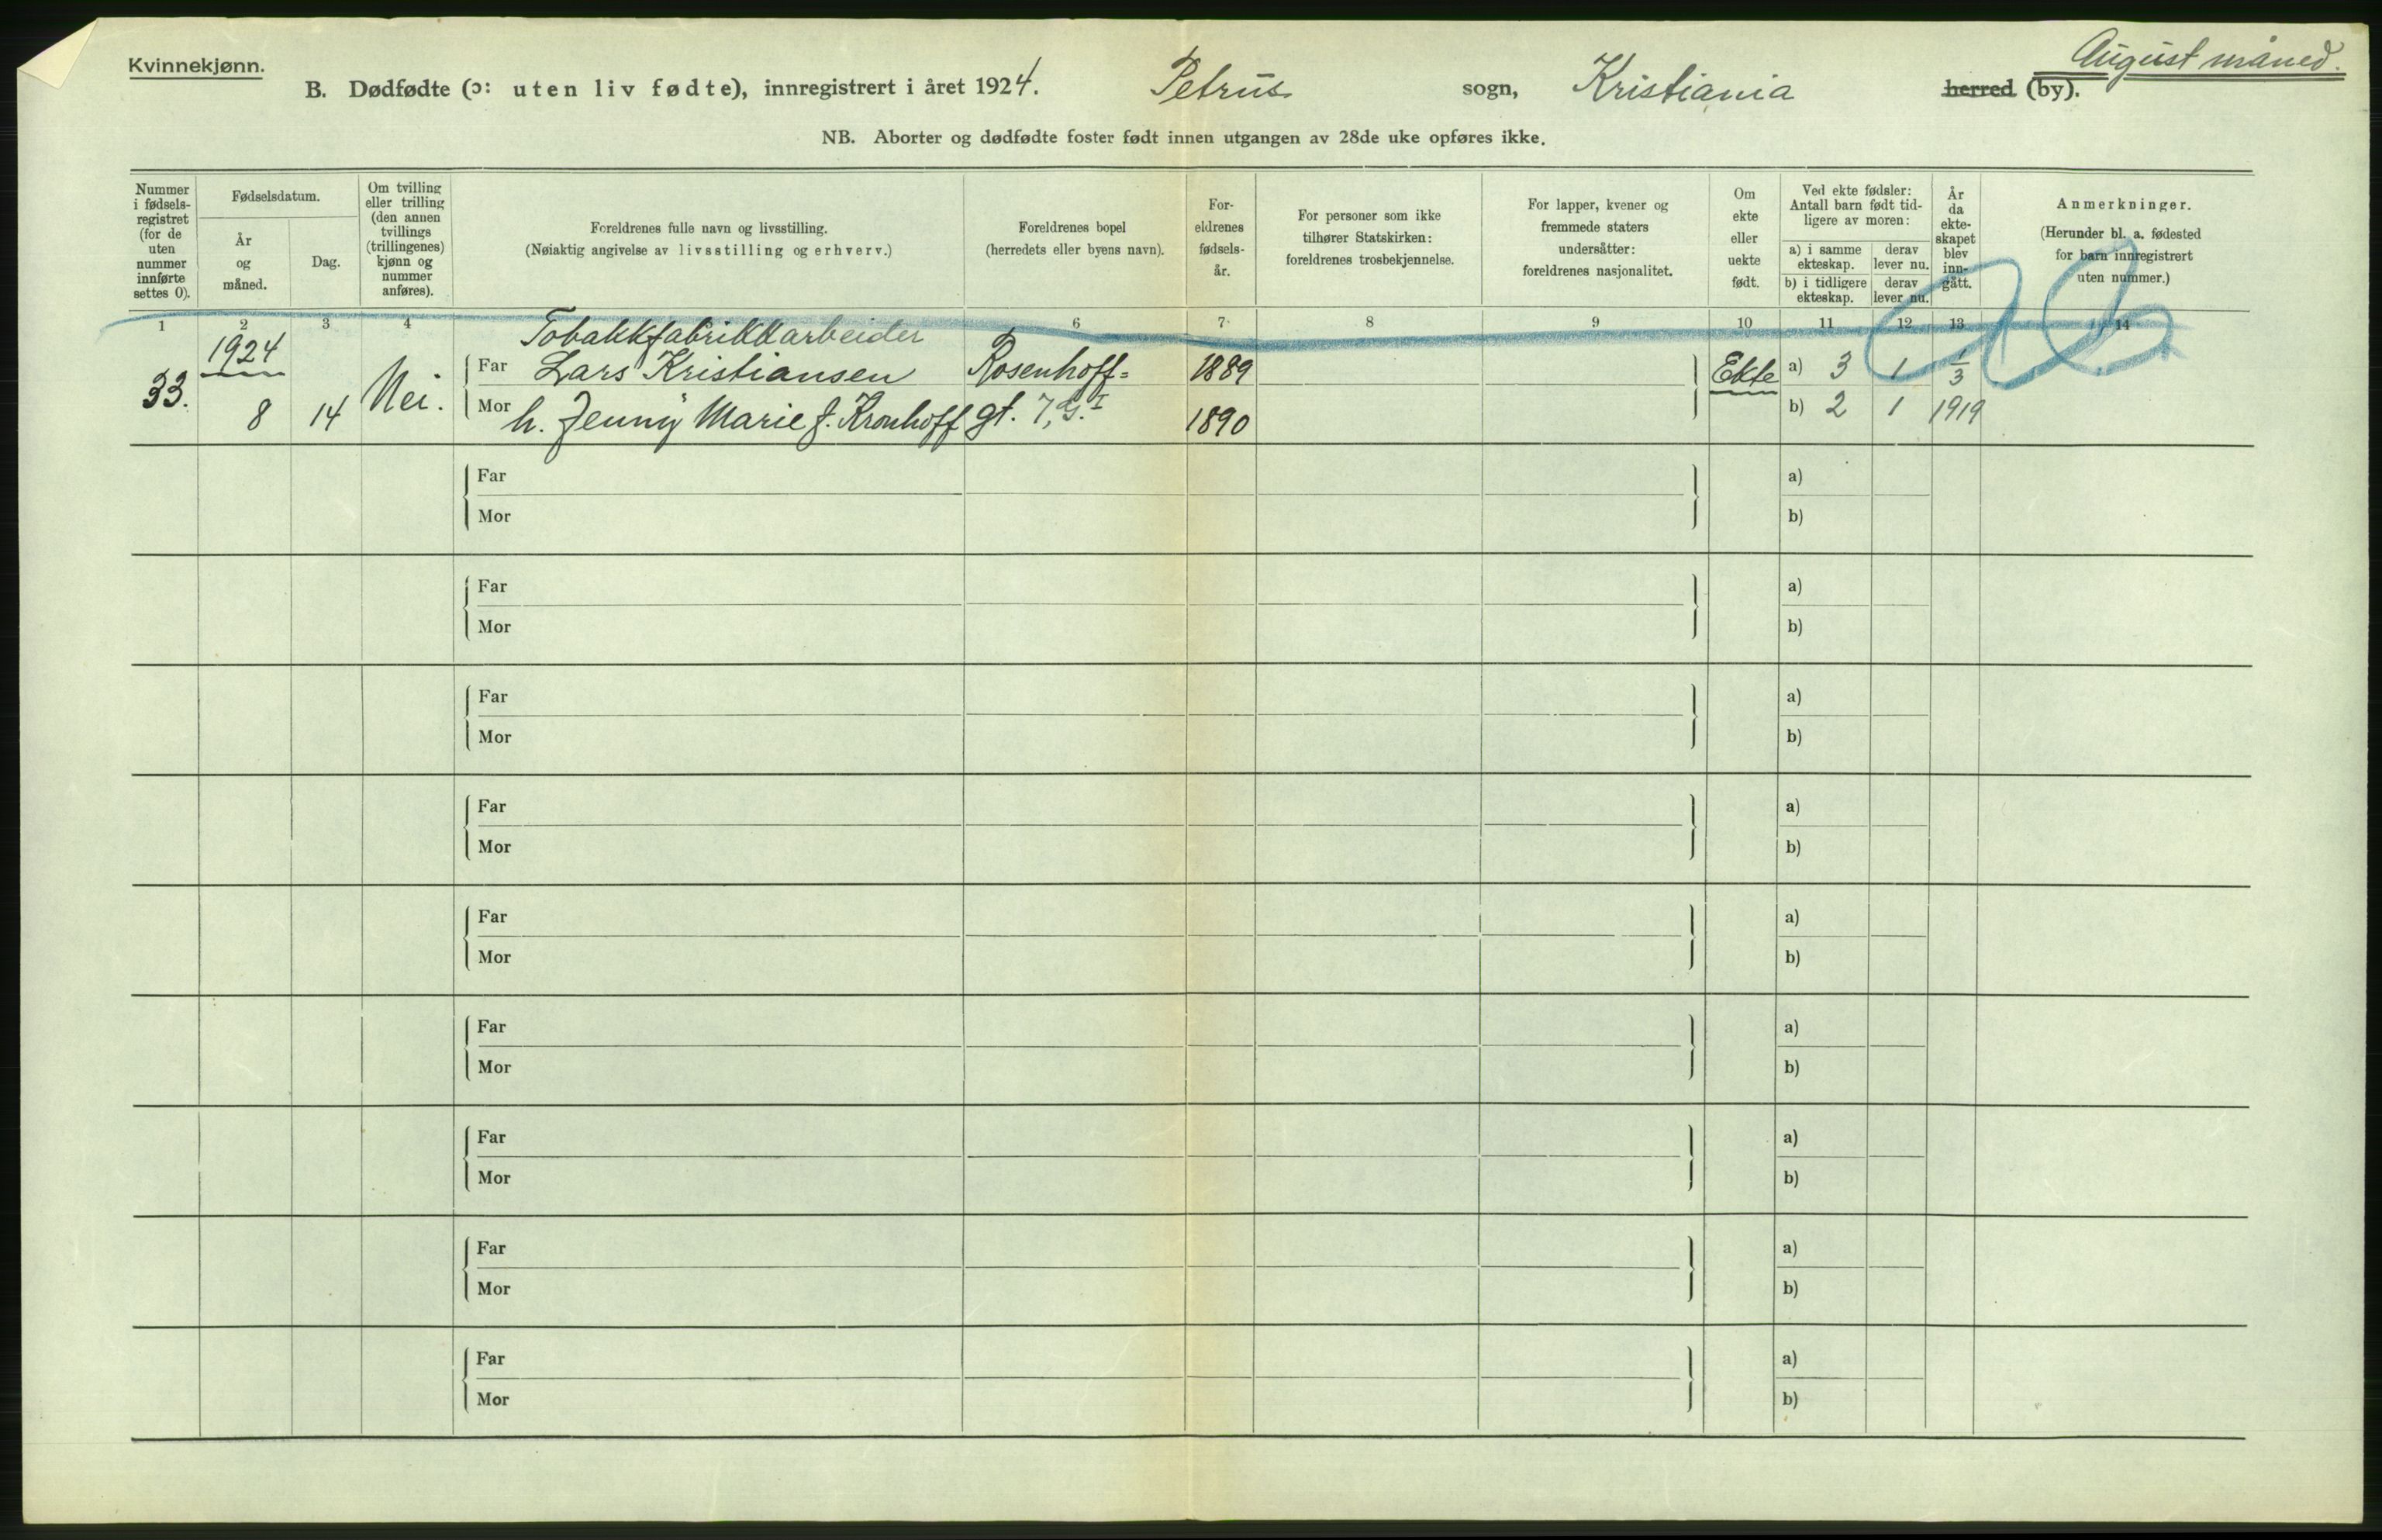 Kvinnekjønn.
August måned.
B. Dødfødte (ɔ: uten liv fødte), innregistrert i året 1924. Petrus sogn, Kristiania herred (by).
NB. Aborter og dødfødte foster født innen utgangen av 28de uke opføres ikke.
Nummer i fødselsregistret (for de uten nummer innførte settes 0).
Fødselsdatum.
År og måned.
Dag.
Om tvilling eller trilling (den annen tvillings (trillingenes) kjønn og nummer anføres).
Foreldrenes fulle navn og livsstilling.
(Nøiaktig angivelse av livsstilling og erhverv.)
Foreldrenes bopel
(herredets eller byens navn).
Foreldrenes fødselsår.
For personer som ikke tilhører Statskirken: foreldrenes trosbekjennelse.
For lapper, kvener og fremmede staters undersåtter: foreldrenes nasjonalitet.
Om ekte eller uekte født.
Ved ekte fødsler: Antall barn født tidligere av moren:
a) i samme ekteskap.
derav lever nu.
b) i tidligere ekteskap.
derav lever nu.
År da ekteskapet blev inngått.
Anmerkninger.
(Herunder bl. a. fødested for barn innregistrert uten nummer.)
1 2 3 4 6 7 8 9 10 11 12 13 14
1924 Tobakkfabrikkarbeider
33. Nei. Far Lars Kristiansen Rosenhoff= 1889 Ekte a) 3 1 1/3
8 14 Mor h. Jenny Marie f. Kronhoff gt. 7, 1890 b) 2 1 1919
Far a)
Mor b)
Far a)
Mor b)
Far a)
Mor b)
Far a)
Mor b)
Far a)
Mor b)
Far a)
Mor b)
Far a)
Mor b)
Far a)
Mor b)
Far a)
Mor b)